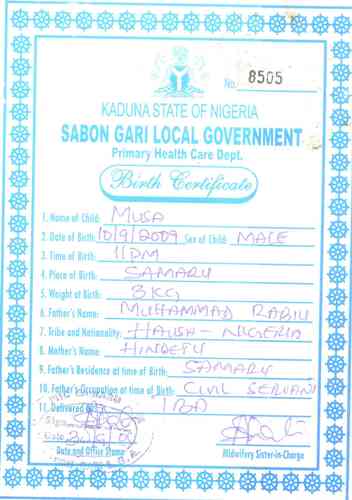 No. 8505
KADUNA STATE OF NIGERIA
SABON GARI LOCAL GOVERNMENT
Primary Health Care Dept.
Birth Certificate
1. Name of Child: MUSA
2. Date of Birth: 10/9/2009 Sex of Child: MALE
3. Time of Birth: 11PM
4. Place of Birth: SAMARU
5. Weight at Birth: 3KG
6. Father's Name: MUHAMMAD RABIU
7. Tribe and Nationality: HAUSA - NIGERIA
8. Mother's Name:
9. Father's Residence at time of Birth: SAMARU
10. Father's Occupation at time of Birth: CIVIL SERVANT
11. Delivered
Date
Date and Office Stamp
Midwifery Sister-in-Charge